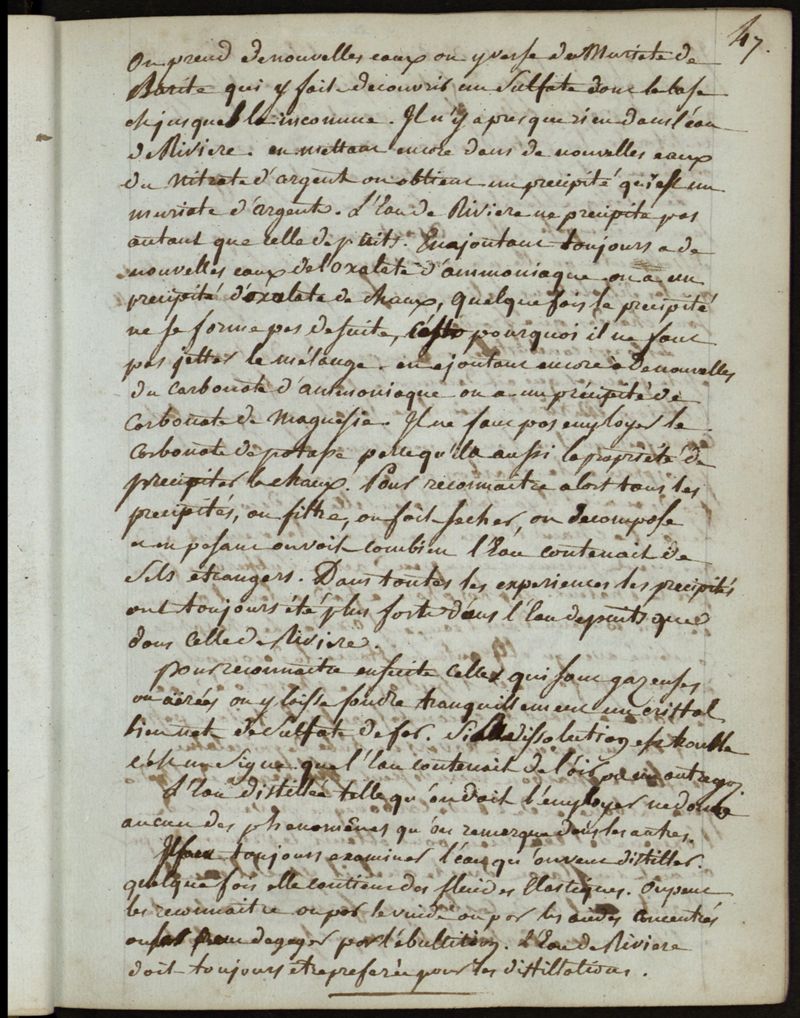 47.
On prend de nouvelles eaux on y verse du Muriate de
Barite qui y fait decouvrir un Sulfate dont la base
est jusques la inconnue. Il n'y a presque rien dans l'eau
de Riviere. en mettant encore dans de nouvelles eaux
du nitrate d'argent on obtient un precipité qui est un
muriate d'argent. L'Eau de Riviere ne precipite pas
autant que celle de puits. En ajoutant toujours a de
nouvelles eaux de l'oxalate d'ammoniaque on a un
precipité d'oxalate de chaux, quelque fois le precipité
ne se forme pas de suite, c'est pourquoi il ne faut
pas jetter le mélange. en ajoutant encore à de nouvelles
du carbonate d'ammoniaque on a un précipité de
Carbonate de Magnesie. Il ne faut pas employer le
Carbonate de potasse parce qu'il a aussi la proprieté de
precipiter la chaux. Pour reconnaitre alors tous les
precipités, on filtre, on fait secher, on decompose
et en pesant on voit combien l'Eau contenait de
Sels etrangers. Dans toutes les experiences les precipités
ont toujours été plus forts dans l'Eau de puits que
dans celle de Riviere.
Pour reconnaitre ensuite celles qui sont gazeuses
ou aérées on y laisse fondre tranquillement un cristal
bien net de Sulfate de fer. Si la dissolution est trouble
c'est un Signe que l'Eau contenait de l'air ou un autre gaz.
L'Eau distillée telle qu'on doit l'employer ne donne
aucun des phenomènes qu'on remarque dans les autres.
Il faut toujours examiner l'eau qu'on veut distiller.
quelque fois elle contient des fluides Elastiques. On peut
les reconnaitre ou par le vuide ou par les acides concentrés
ou les degager par l'ébullition. L'Eau de Riviere
doit toujours etre preferée pour les distillations.